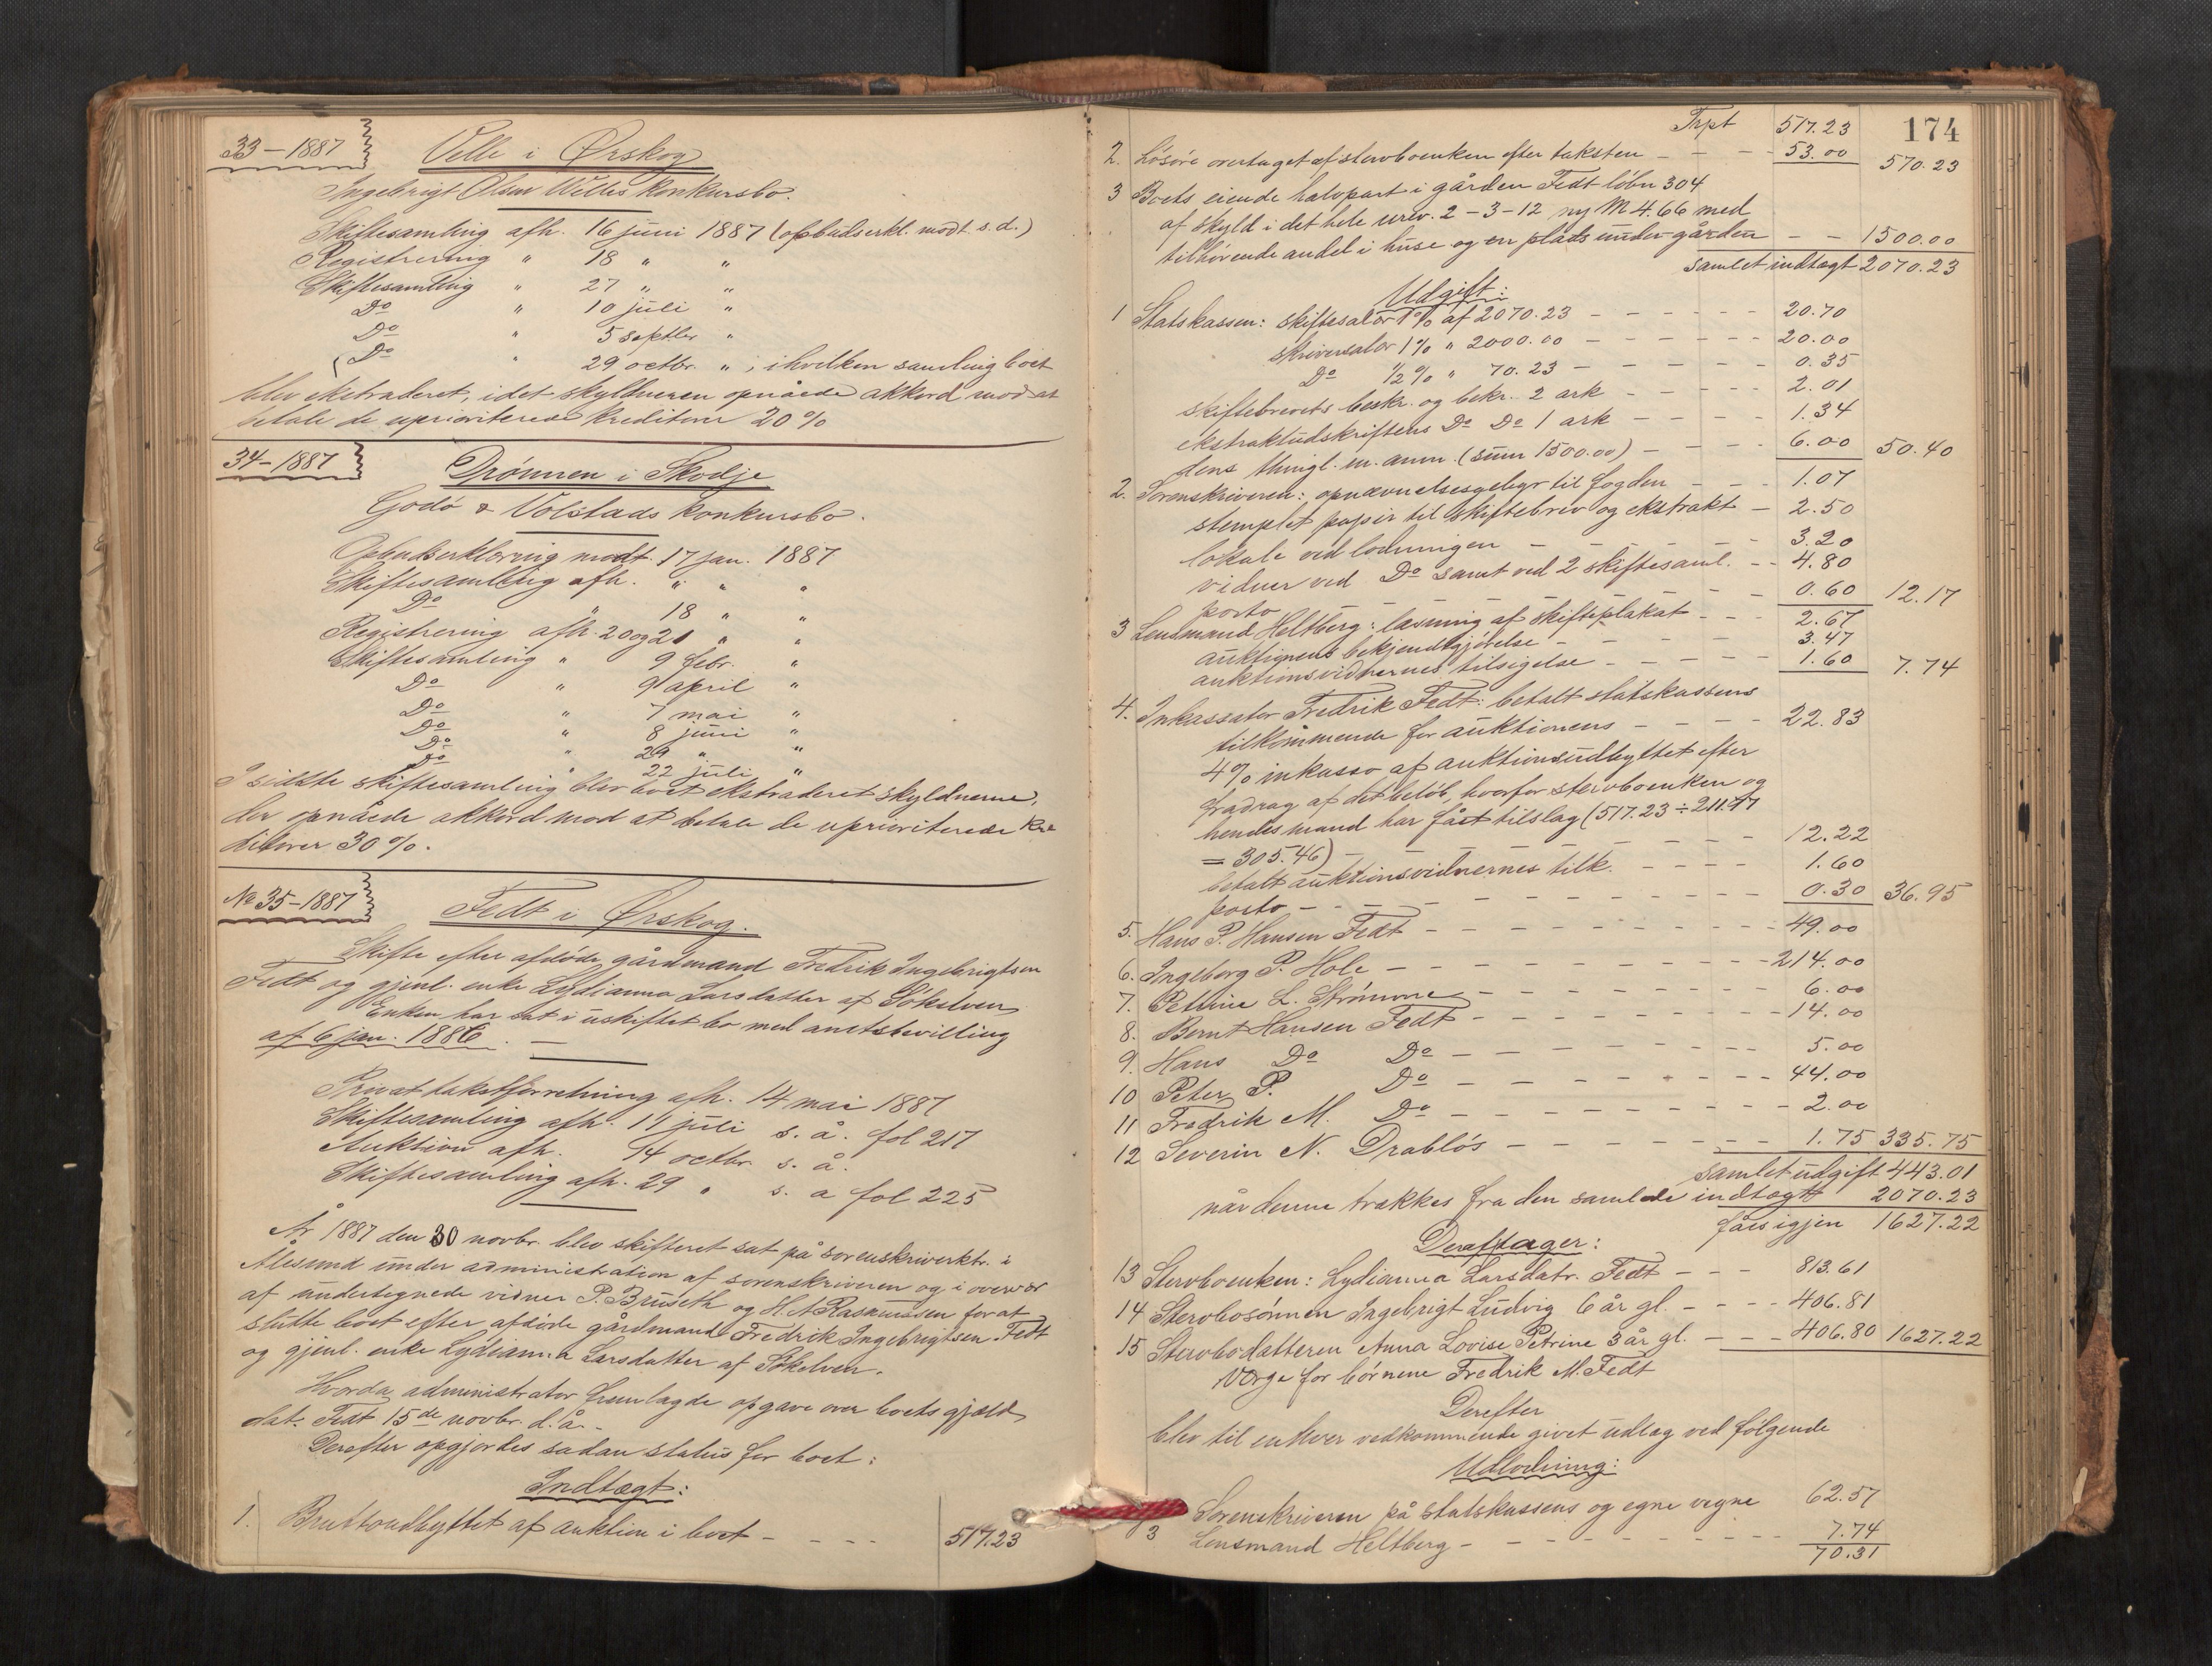 33-1887
Velle i Ørskog
Ingebrigt Olsen Velles konkursbo.
Skiftesamling afh. 16 juni 1887 (opbudserkl. modt. s. d.)
Registrering " 18 " "
Skiftesamling " 27 " "
Do " 10 juli "
Do " 5 septbr "
Do " 29 octbr. " , i hvilken samling boet
blev ekstraderet, idet skyldneren opnåede akkord mod at
betale de uprioriterede kreditorer 20 %
34-1887
Drønnen i Skodje
Godø & Volstads konkursbo.
Opbudserklæring modt. 17 jan. 1887
Skiftesamling afh. " " "
Do " 18 " "
Registrering afh. 20 og 21 " "
Skiftesamling " 9 febr. "
Do " 9 april "
Do " 7 mai "
Do " 8 juni "
Do " 29 " "
Do " 22 juli "
I sidste skiftesamling blev boet ekstraderet skyldnerne,
der opnåede akkord mod at betale de uprioriterede kre
ditorer 30 %.
No 35-1887
Fedt i Ørskog.
Skifte efter afdøde gårdmand Fredrik Ingebrigtsen
Fedt og gjenl. enke Lydianna Larsdatter af Søkelven
Enken har sat i uskiftet bo med amtsbevilling
af 6 jan. 1886.
Privat takstforretning afh. 14 mai 1887
Skiftesamling afh. 11 juli s. å. fol 217
Auktion afh. 14 octbr. s. å.
Skiftesamling afh. 29 " s. a fol 225
År 1887 den 30 novbr. blev skifteret sat på sorenskriverktr. i
Ålesund under administration af sorenskriveren og i overvær
af undertegnede vidner P. Bruseth og H. A Rasmussen for at
slutte boet efter afdøde gårdmand Fredrik Ingebrigtsen Fedt
og gjenl. enke Lydianna Larsdatter af Søkelven.
Hvorda administrator fremlagde opgave over boets gjæld
dat. Fedt 15de novbr. d. å.
Derefter opgjordes sådan status for boet:
Indtægt:
1. Bruttoudbyttet af auktion i boet - - - - 517.23
174
Trpt 517.23
2. Løsøre overtaget af stervboenken efter taksten - - - 53.00 570.23
3 Boets eiende halvpart i gården Fedt løbn 304
af skyld i det hele urev. 2-3-12 ny M 4.66 med
tilhørende andel i huse og en plads under gården - - 1500.00
samlet indtægt 2070.23
Udgift:
1 Statskassen: skiftesalær 1 % af 2070.23 - - - - - 20.70
skriversalær 1 % " 2000.00 - - - - - - 20.00
Do 1/2 % " 70.23 - - - - - 0.35
skiftebrevets beskr. og bekr. 2 ark - - - - 2.01
ekstraktudskriftens Do Do 1 ark - - - - 1.34
dens thingl. m. anm. (sum 1500.00) - - - - 6.00 50.40
2. Sorenskriveren: opnævnelsesgebyr til fogden - - - 1.07
stemplet papir til skiftebrev og ekstrakt - 2.50
lokale ved lodningen - - - - 3.20
vidner ved Do samt ved 2 skiftesaml. - - 4.80
porto - - - - - - 0.60 12.17
3 Lensmand Heltberg: læsning af skifteplakat - - - 2.67
auktionens bekjendtgjørelse - - - - 3.47
auktionsvidnernes tilsigelse - - - - - 1.60 7.74
4. Inkassator Fredrik Fedt: betalt statskassens
tilkommende for auktionens - - - - 22.83
4 % inkasso af auktionsudbyttet efter
fradrag af det beløb, hvorfor stervboenken og
hendes mand har fået tilslag (517.23 ÷ 211.77
= 305.46) - - - - - - 12.22
betalt auktionsvidnernes tilk. - - - - 1.60
porto - - - - - - - - 0.30 36.95
5. Hans P. Hansen Fedt - - - - - - - 49.00
6. Ingeborg P. Hole - - - - - - - - 214.00
7. Petline L. Strømme - - - - - - - 6.00
8. Bernt Hansen Fedt - - - - - - - 14.00
9. Hans Do Do - - - - - - - 5.00
10 Peter P. Do - - - - - - - 44.00
11 Fredrik M. Do - - - - - - - 2.00
12 Severin N. Drabløs - - - - - - 1.75 335.75
samlet udgift 443.01
når denne trækkes fra den samlede indtægt 2070.23
fåes igjen 1627.22
Deraf tager:
13 Stervboenken: Lydianna Larsdatr. Fedt - - - 813.61
14 Stervbosønnen Ingebrigt Ludvig 6 år gl. - - - - 406.81
15 Stervbodatteren Anna Lovise Petrine 3 år gl. - - - 406.80 1627.22
Værge for børnene Fredrik M. Fedt
Derefter
blev til enhver vedkommende givet udlæg ved følgende
Udlodning:
Sorenskriveren på statskassens og egne vegne 62.57
3 Lensmand Heltberg - - - - - - - 7.74
70.31